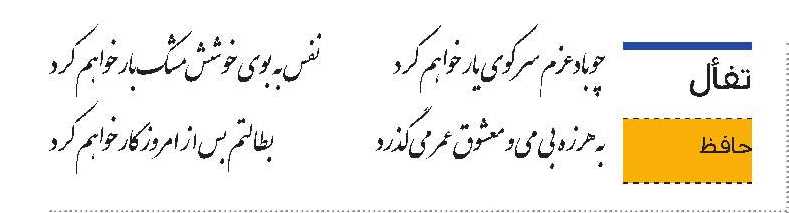 تفأل
حافظ
چو باد عزم سر کوی یار خواهم کرد
نفس به بوی خوشش مشک بار خواهم کرد
به هرزه بی می و معشوق عمر می گذرد
بطالتم بس از امروز کار خواهم کرد